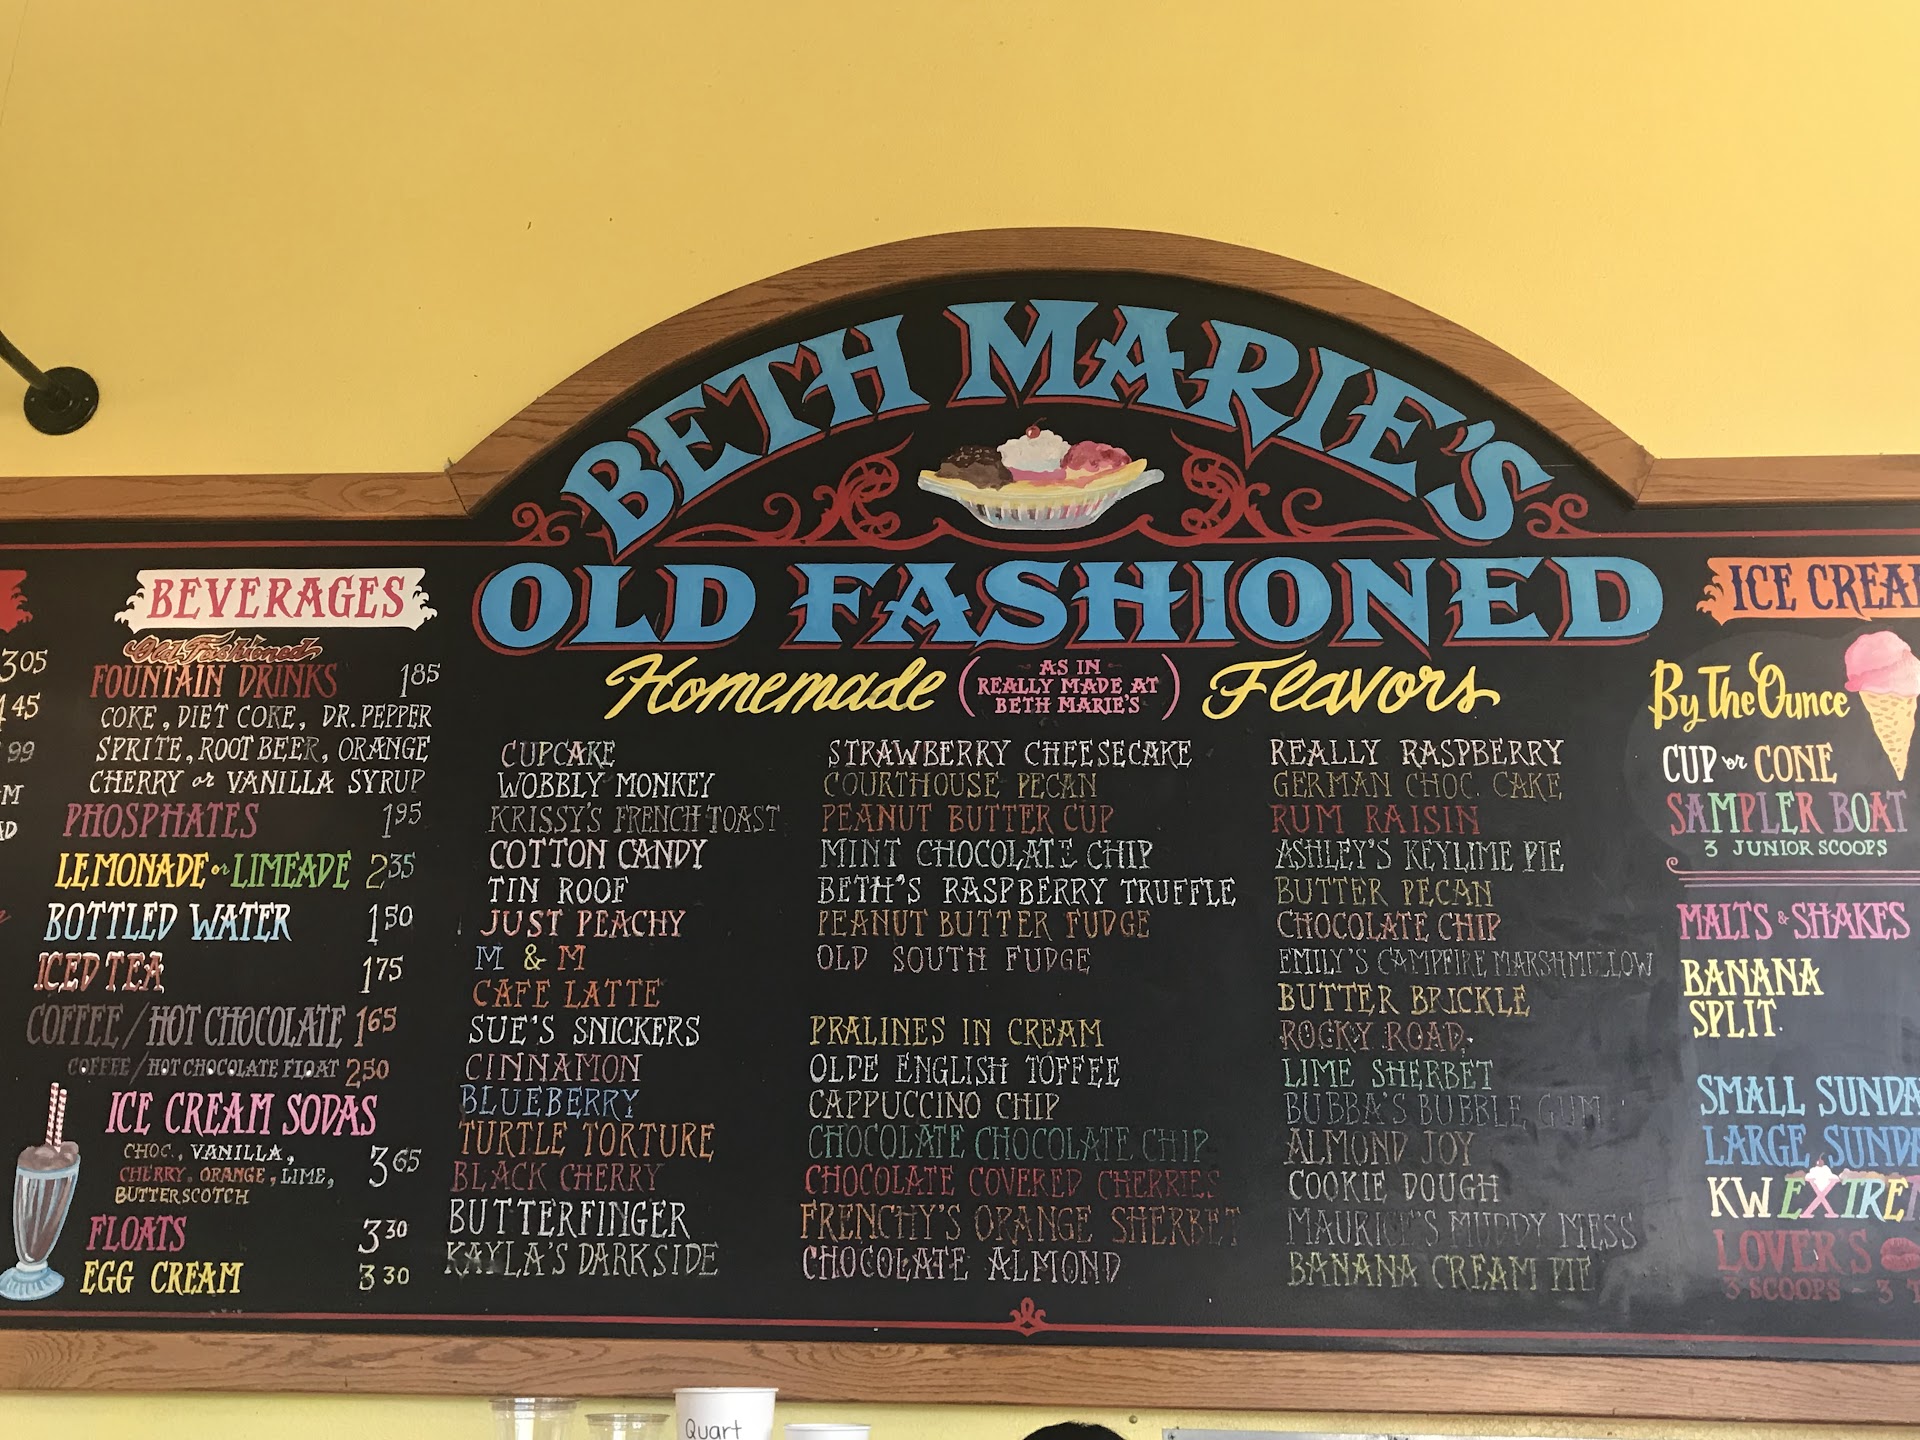 BETH MARIE'S
OLD FASHIONED
Homemade (AS IN REALLY MADE AT BETH MARIE'S) Flavors
3.05
4.45
99
BEVERAGES
Old Fashioned
FOUNTAIN DRINKS 1.85
COKE, DIET COKE, DR. PEPPER
SPRITE, ROOT BEER, ORANGE
CHERRY or VANILLA SYRUP
PHOSPHATES 1.95
LEMONADE or LIMEADE 2.35
BOTTLED WATER 1.50
ICED TEA 1.75
COFFEE/HOT CHOCOLATE 1.65
COFFEE/HOT CHOCOLATE FLOAT 2.50
ICE CREAM SODAS
CHOC., VANILLA, 3.65
CHERRY, ORANGE, LIME,
BUTTERSCOTCH
FLOATS 3.30
EGG CREAM 3.30
CUPCAKE
WOBBLY MONKEY
KRISSY'S FRENCH TOAST
COTTON CANDY
TIN ROOF
JUST PEACHY
M & M
CAFE LATTE
SUE'S SNICKERS
CINNAMON
BLUEBERRY
TURTLE TORTURE
BLACK CHERRY
BUTTERFINGER
KAYLA'S DARKSIDE
STRAWBERRY CHEESECAKE
COURTHOUSE PECAN
PEANUT BUTTER CUP
MINT CHOCOLATE CHIP
BETH'S RASPBERRY TRUFFLE
PEANUT BUTTER FUDGE
OLD SOUTH FUDGE
PRALINES IN CREAM
OLDE ENGLISH TOFFEE
CAPPUCCINO CHIP
CHOCOLATE CHOCOLATE CHIP
CHOCOLATE COVERED CHERRIES
FRENCHY'S ORANGE SHERBET
CHOCOLATE ALMOND
REALLY RASPBERRY
GERMAN CHOC. CAKE
RUM RAISIN
ASHLEY'S KEYLIME PIE
BUTTER PECAN
CHOCOLATE CHIP
EMILY'S CAMPFIRE MARSHMELLOW
BUTTER BRICKLE
ROCKY ROAD
LIME SHERBET
BUBBA'S BUBBLE GUM
ALMOND JOY
COOKIE DOUGH
MAURICE'S MUDDY MESS
BANANA CREAM PIE
ICE CREA
By The Ounce
CUP or CONE
SAMPLER BOAT
3 JUNIOR SCOOPS
MALTS & SHAKES
BANANA
SPLIT
SMALL SUNDA
LARGE SUNDA
KW EXTRE
LOVER'S
3 SCOOPS - 3 T
Quart